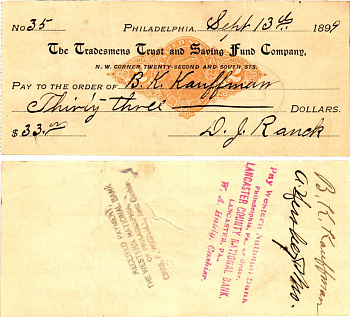 No 35 Philadelphia, Sept 13th 1899
The Tradesmens Trust and Saving Fund Company,
N. W. CORNER TWENTY-SECOND AND SOUTH STS.
PAY TO THE ORDER OF B. K. Kauffman
Thirty three DOLLARS.
$ 33.00 D. J. Ranck
B. K. Kauffman
Pay Western National Bank
Philadelphia, Pa., or Order,
LANCASTER COUNTY NATIONAL BANK,
LANCASTER, PA.
Cashier.
RECEIVED PAYMENT
THE WESTERN NATIONAL BANK
OF PHILADELPHIA
CHAS. F. Cashier